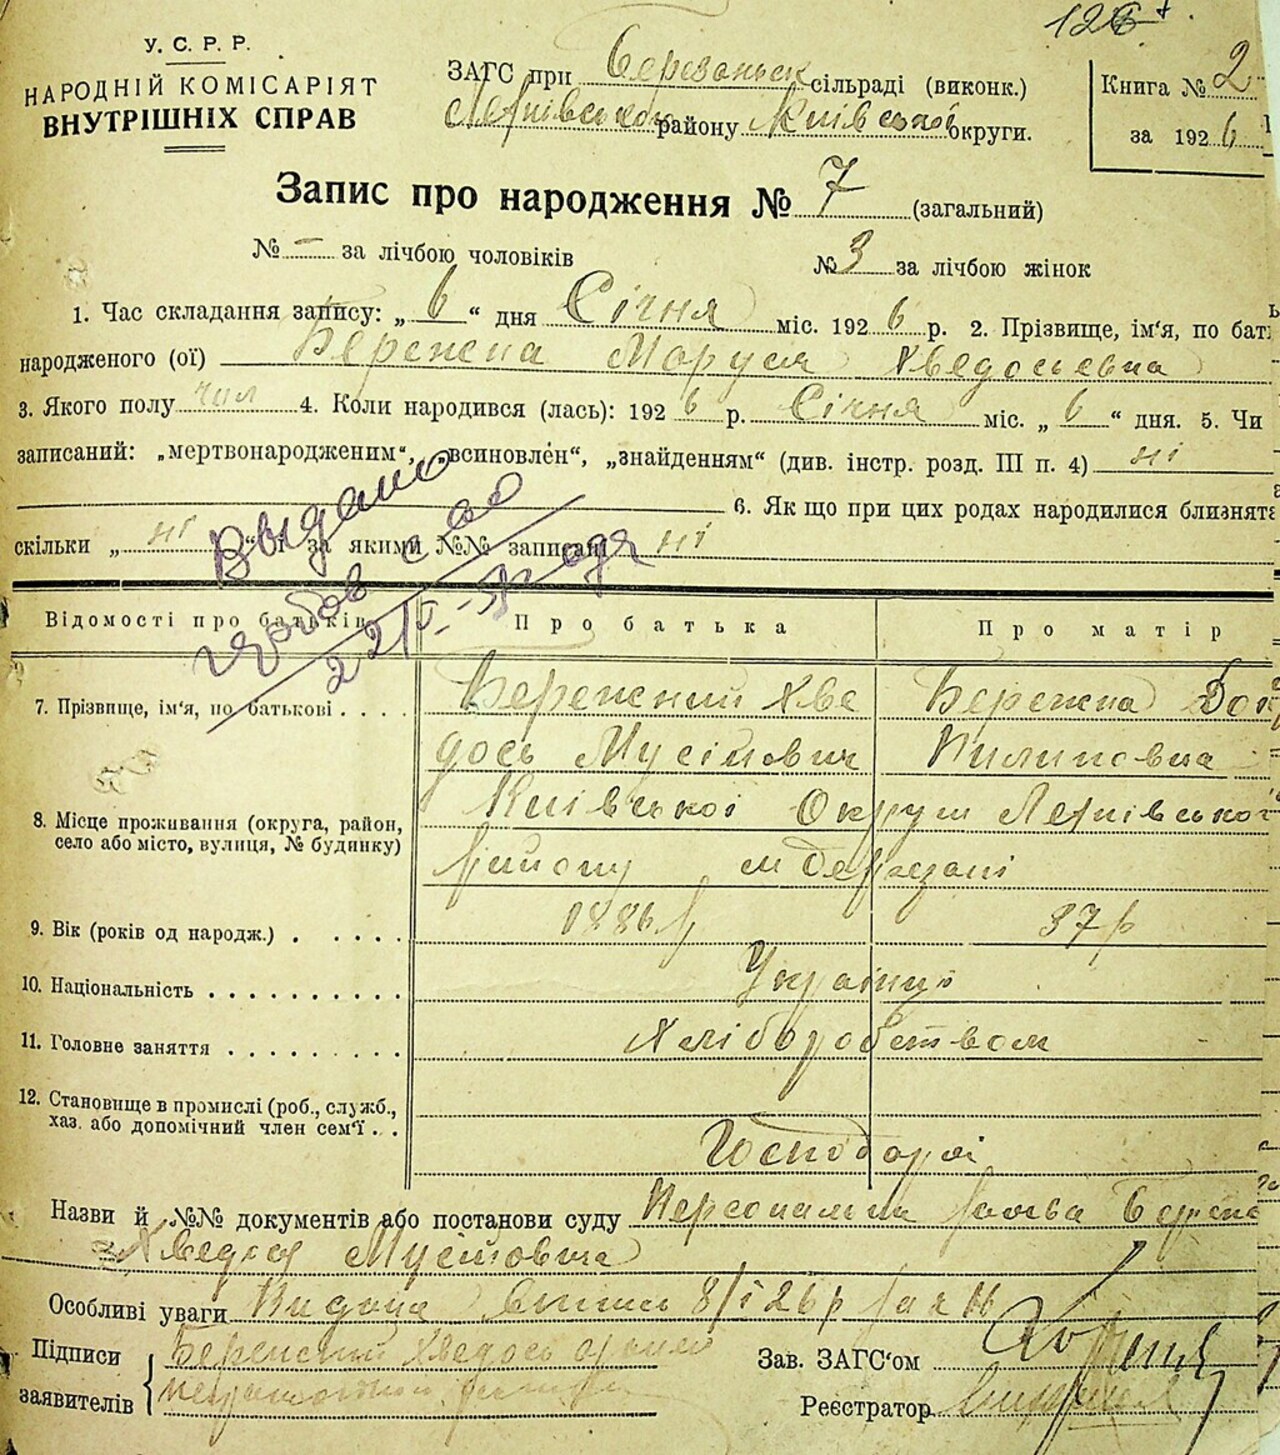 У. С. Р. Р.
НАРОДНІЙ КОМІСАРІЯТ
ВНУТРІШНІХ СПРАВ
ЗАГС при Березанськ сільраді (виконк.)
району Київської округи.
Книга № 2
за 1926
Запис про народження № 7 (загальний)
№ – за лічбою чоловіків
№ 3 за лічбою жінок
1. Час складання запису: „ 6 “ дня Січня міс. 1926 р. 2. Прізвище, ім‘я, по бать
народженого (ої) Бережна Маруся Хведосьевна
3. Якого полу жін 4. Коли народився (лась): 1926 р. Січня міс. „ 6 “ дня. 5. Чи
записаний: „мертвонародженим“, „всиновлен“, „знайденням“ (див. інстр. розд. III п. 4) ні
6. Як що при цих родах народилися близнята
скільки „ ні “ і за якими №№ записані ні
Выдано
Відомості про батьків
Про батька
Про матір
7. Прізвище, ім‘я, по батькові . . . .
Бережний Хве
дось Мусійович
Бережна
Пилиповна
8. Місце проживання (округа, район,
село або місто, вулиця, № будинку)
Київської Округи
району м Березані
9. Вік (років од народж.) . . . . .
1886 р
37 р
10. Національність . . . . . . . . . .
Українці
11. Головне заняття . . . . . . . . .
Хліборобством
12. Становище в промислі (роб., служб.,
хаз. або допомічний член сем‘ї . . .
Господарі
Назви й №№ документів або постанови суду Персональна заява Бережн
Хведося Мусійовича
Особливі уваги Видана 8/I 26 р за №
Підписи
заявителів
Бережний Хведось
Зав. ЗАГС‘ом
Реєстратор